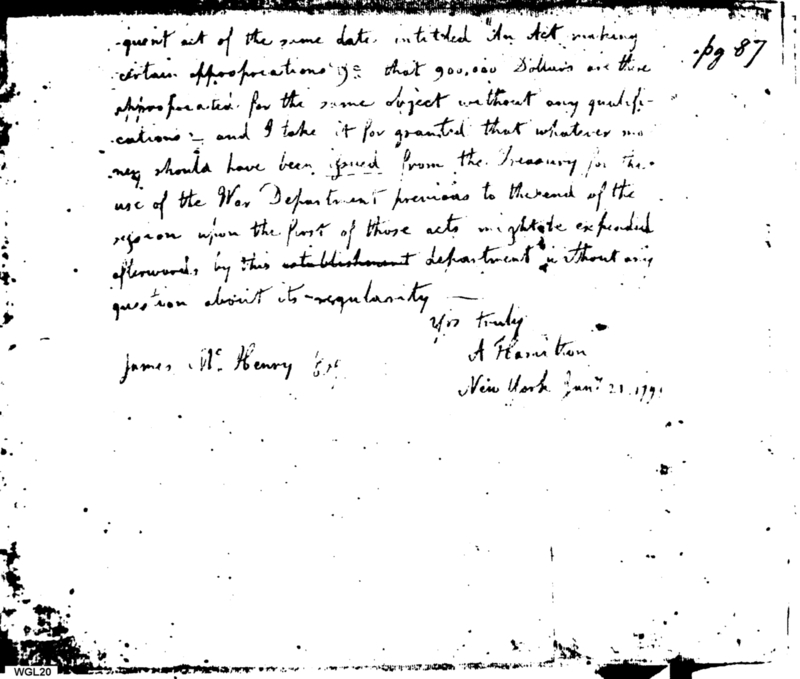 pg 87
quent act of the same date intitled "An Act making
certain appropriations &c that 900,000 Dollars are there
appropriated for the same object without any qualifi-
cations – and I take it for granted that whatever mo
ney should have been issued from the Treasury for the
use of the War Department previous to the end of the
session upon the first of those acts might be expended
afterwards by this establishment department without any
question about its regularity —
Yrs truly
A Hamilton
James Mc. Henry Esq
New York Jany 21. 179
WGL20